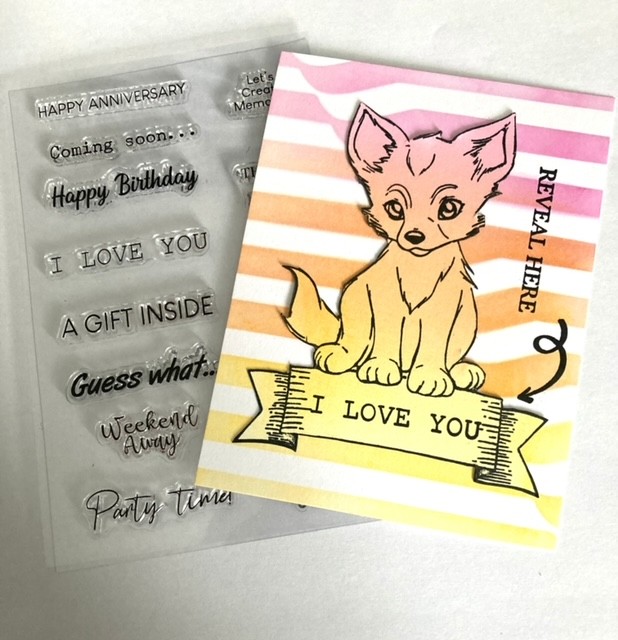 HAPPY ANNIVERSARY
Coming soon...
Happy Birthday
I LOVE YOU
A GIFT INSIDE
Guess what..
Weekend
Away
Party time!
Let's
REVEAL HERE
I LOVE YOU